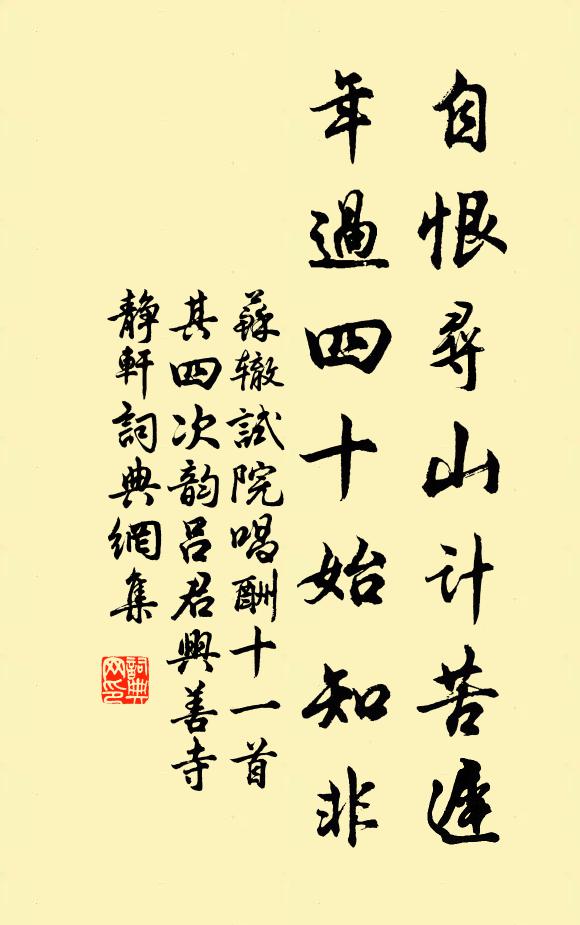 自恨尋山计苦遲
年過四十始知非
蘇辙試院唱酬十一首
其四次韵吕君興善寺
静軒詞典網集
詞典网印